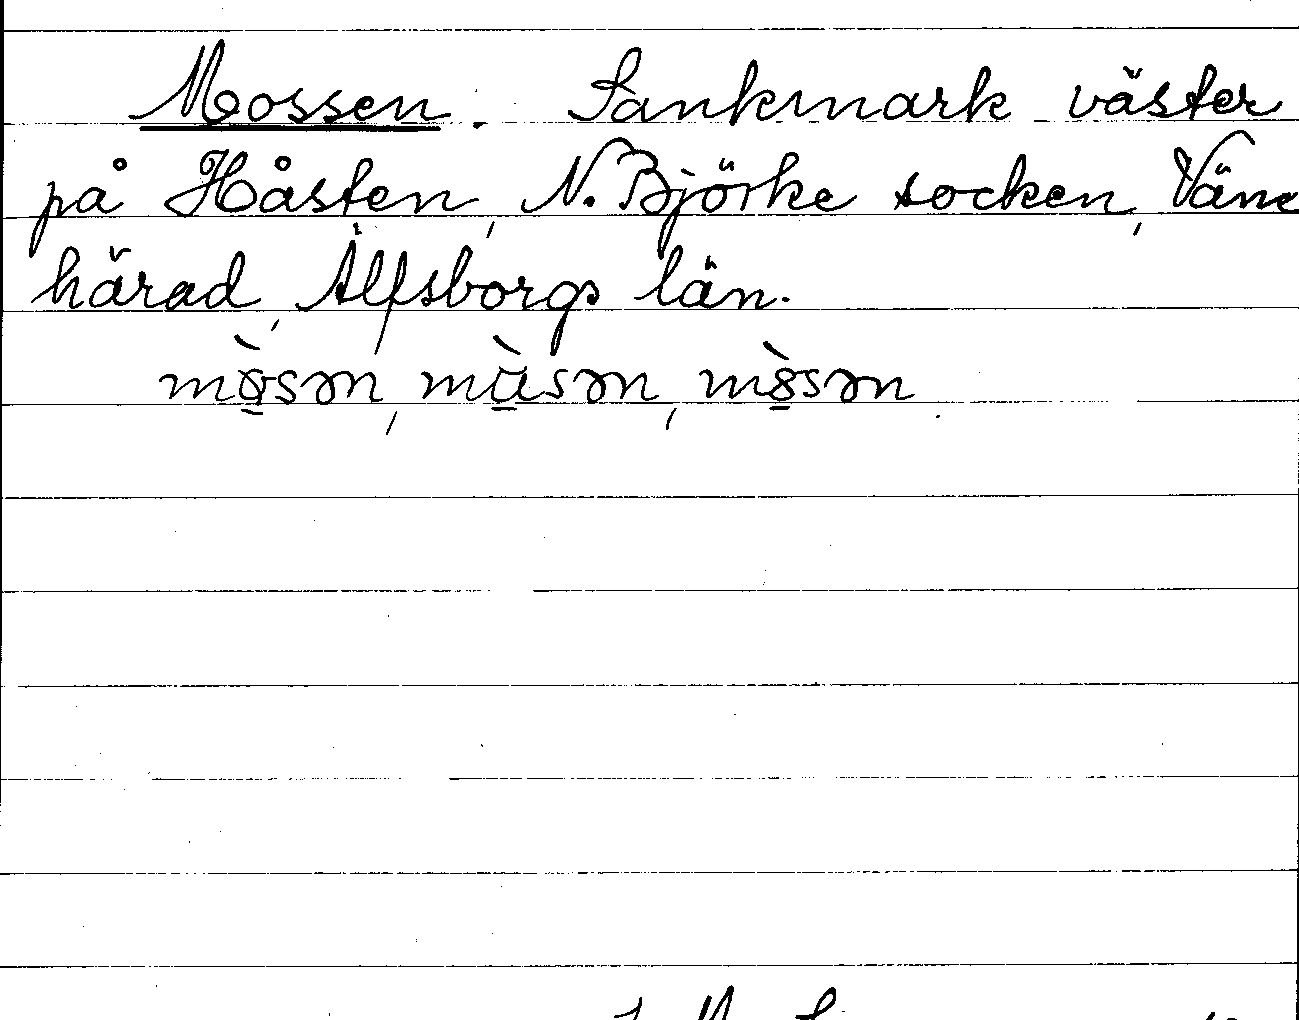 Mossen. Sankmark väster
på Håsten, N. Björke socken, Väne
härad, Älfsborgs län.